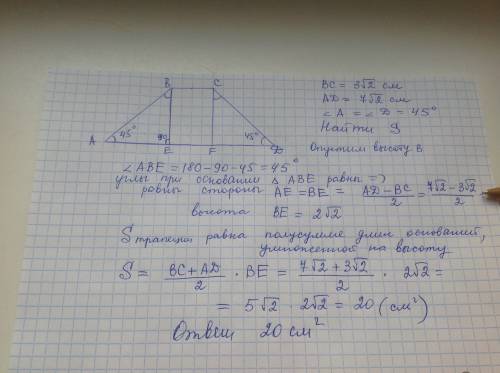 B C
A 45° 90 45° D
E F
BC = 3√2 см
AD = 7√2 см
∠A = ∠D = 45°
Найти S
Опустим высоту B
∠ABE = 180 - 90 - 45 = 45°
углы при основании △ ABE равны =>
равны стороны AE = BE = (AD - BC)/2 = (7√2 - 3√2)/2
высота BE = 2√2
S трапеции равна полусумме длин оснований,
умноженной на высоту
S = (BC + AD)/2 · BE = (7√2 + 3√2)/2 · 2√2 =
= 5√2 · 2√2 = 20 (см²)
Ответ 20 см²